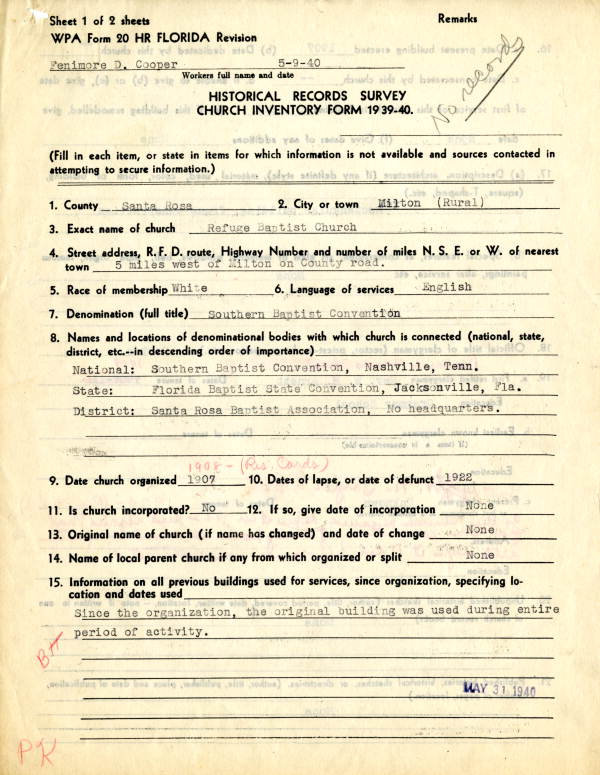 Sheet 1 of 2 sheets Remarks
WPA Form 20 HR FLORIDA Revision
Fenimore D. Cooper 5-9-40
Workers full name and date
No records
HISTORICAL RECORDS SURVEY
CHURCH INVENTORY FORM 1939-40.
(Fill in each item, or state in items for which information is not available and sources contacted in
attempting to secure information.)
1. County Santa Rosa 2. City or town Milton (Rural)
3. Exact name of church Refuge Baptist Church
4. Street address, R.F.D. route, Highway Number and number of miles N. S. E. or W. of nearest
town 5 miles west of Milton on County road.
5. Race of membership White 6. Language of services English
7. Denomination (full title) Southern Baptist Convention
8. Names and locations of denominational bodies with which church is connected (national, state,
district, etc.--in descending order of importance)
National: Southern Baptist Convention, Nashville, Tenn.
State: Florida Baptist State Convention, Jacksonville, Fla.
District: Santa Rosa Baptist Association, No headquarters.
1908 - (Pres. Cards)
9. Date church organized 1907 10. Dates of lapse, or date of defunct 1922
11. Is church incorporated? No 12. If so, give date of incorporation None
13. Original name of church (if name has changed) and date of change None
14. Name of local parent church if any from which organized or split None
15. Information on all previous buildings used for services, since organization, specifying lo-
cation and dates used
Since the organization, the original building was used during entire
period of activity.
BH
MAY 31 1940
PK